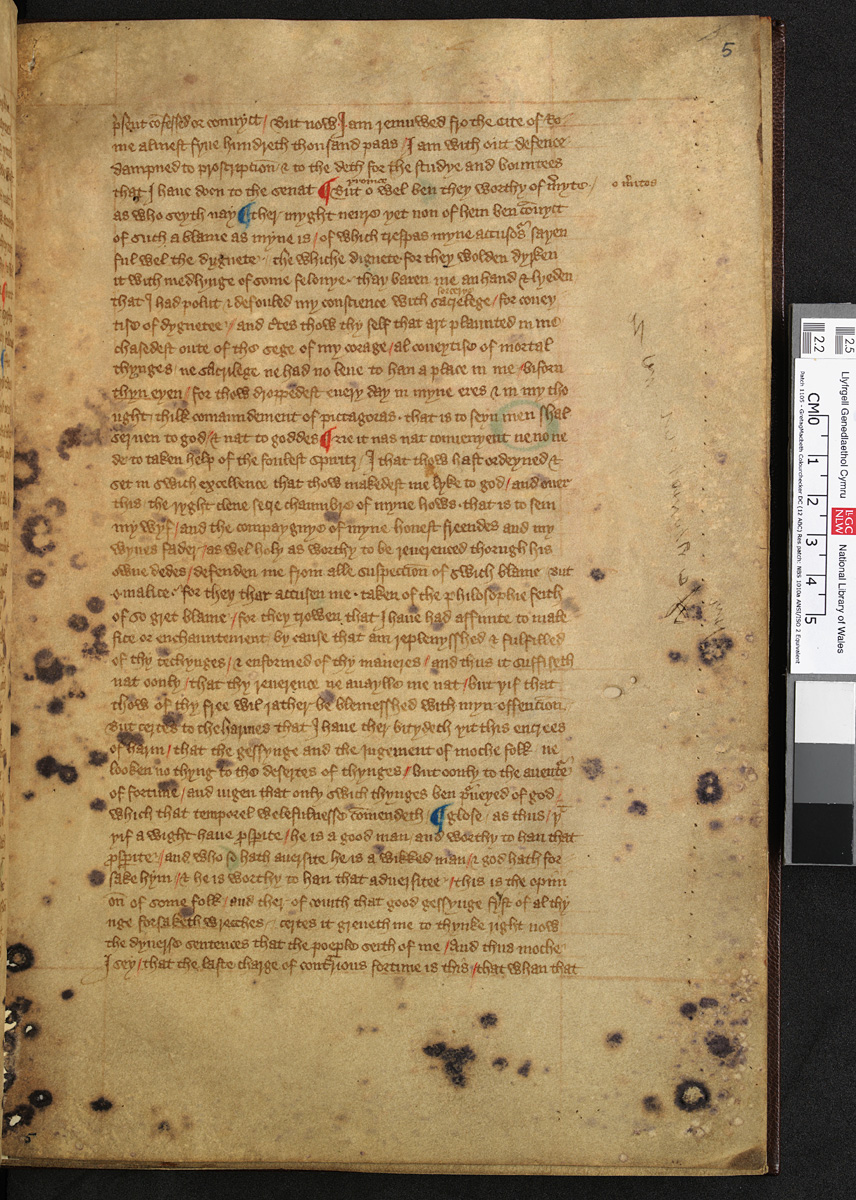 5
p̄sent cōfessed or conuyct / But now I am remuwed fro the cite of Ro
me almest fyue hundreth thousand paas / I am with out defence
dampned to proscription & to the deth for the studye and bountees
that I haue doen to the senat ¶ But o wel ben they worthy of m̄yte / o m̄itos
yronice
as who seyth nay ¶ ther myght neuer yet non of hem ben cōuyct
of such a blame as myne is / of which trespas myne accusoͬs sayen
ful wel the dygnete · the whiche dignete for they wolden dyrken
it with medlynge of some felonye · thay baren me an hand & lyeden
that I had polut & defouled my conscience with sacrelege / for couey
sorcerye
tise of dygnetee / and c̄tes thow thy self that art plaunted in me
chasedest oute of the sege of my corage / al coueytise of mortal
thynges / ne sacrilege ne had no leue to han a place in me / biforn
thyn eyen / for thow droppedest euery day in myne eres & in my tho
ught thilk comaundement of pictagoras · that is to seyn men shal
seruen to god / & nat to goddes ¶ Ne it nas nat conuenyent ne no ne
de to taken help of the foulest spiritz / I that thow hast ordeyned &
set in swich excellence that thow makedest me lyke to god / and ouer
this / the ryght clene secre chaumbre of myne hows · that is to sein
my wyf / and the compaygnye of myne honest freendes and my
wyues fader / as wel holy as worthy to be reuerenced thorugh his
owne dedes / defenden me from alle suspeccion of swich blame / But
o malice · for they that accusen me · taken of the philosophie feith
of so gret blame / for they trowen that I haue had affinite to male
fice or enchauntement by cause that am replenysshed & fulfilled
of thy techynges / & enformed of thy maneres / and thus it suffiseth
nat oonly / that thy reuerence ne auaylle me nat / but yif that
thow of thy free wil rather be blemesshed with myn offencion
But certes to the harmes that I haue ther bitydeth yit this encrees
of harm / that the gessynge and the iugement of moche folk ne
looken no thyng to the desertes of thynges / but oonly to the auentͬe
of fortune / and iugen that only swich thynges ben p̄ueyed of god
which that temporel welefulnesse cōmendeth ¶ glose / as thus / þͭ
yif a wight haue prospite / he is a good man / and worthy to han that
prospite / and who so hath auersite he is a wikked man / & god hath for
sake hym / & he is worthy to han that aduersitee / this is the opini
on̄ of some folk / and ther of comth that good gessynge fyrst of al thy
nge forsaketh wrecches / certes it greueth me to thynke right now
the dyuerse sentences that the poeple seith of me / And thus moche
I sey / that the laste charge of contͬrious fortune is this / that whan that
Llyfrgell Genedlaethol Cymru
National Library of Wales
LLGC
NLW
CM 0 1 2 3 4 5
2.2
2.5